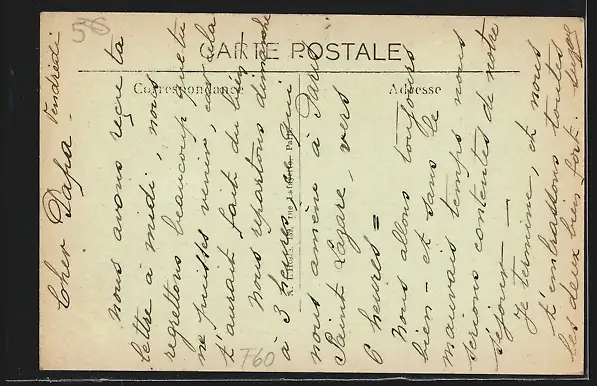 56
CARTE POSTALE
Correspondance
Adresse
Vendredi
Cher Papa -
Nous avons reçu ta
lettre à midi, nous
regrettons beaucoup que tu
ne puisses venir, cela
t'aurait fait du bien
Nous repartons dimanche
à 3 heures ce qui
nous amène à Paris
Saint Lazare, vers
6 heures =
Nous allons toujours
bien - et sans le
mauvais temps nous
serions contentes de notre
séjour -
Je termine, et nous
t'embrassons toutes
les deux bien fort.
F60